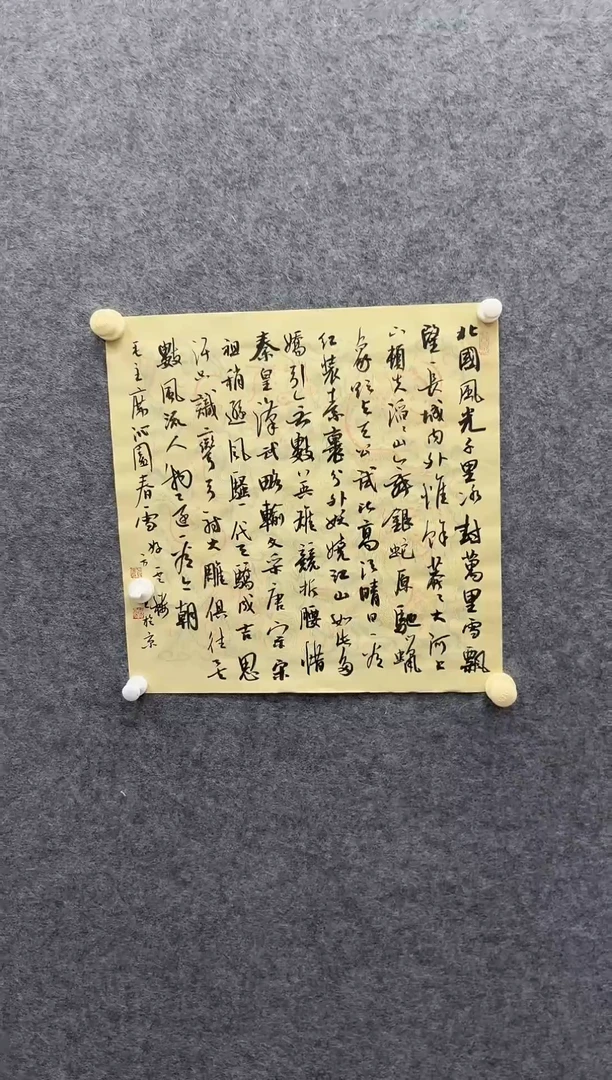 北國風光千里冰封萬里雪飄
望長城內外惟餘莽〻大河上
下頓失滔〻山舞銀蛇原馳蠟
象欲與天公試比高須晴日看
紅裝素裹分外妖嬈江山如此多
嬌引無數英雄競折腰惜
秦皇漢武略輸文采唐宗宋
祖稍遜風騷一代天驕成吉思
汗只識彎弓射大雕俱往矣
數風流人物還看今朝
毛主席沁園春雪
於京